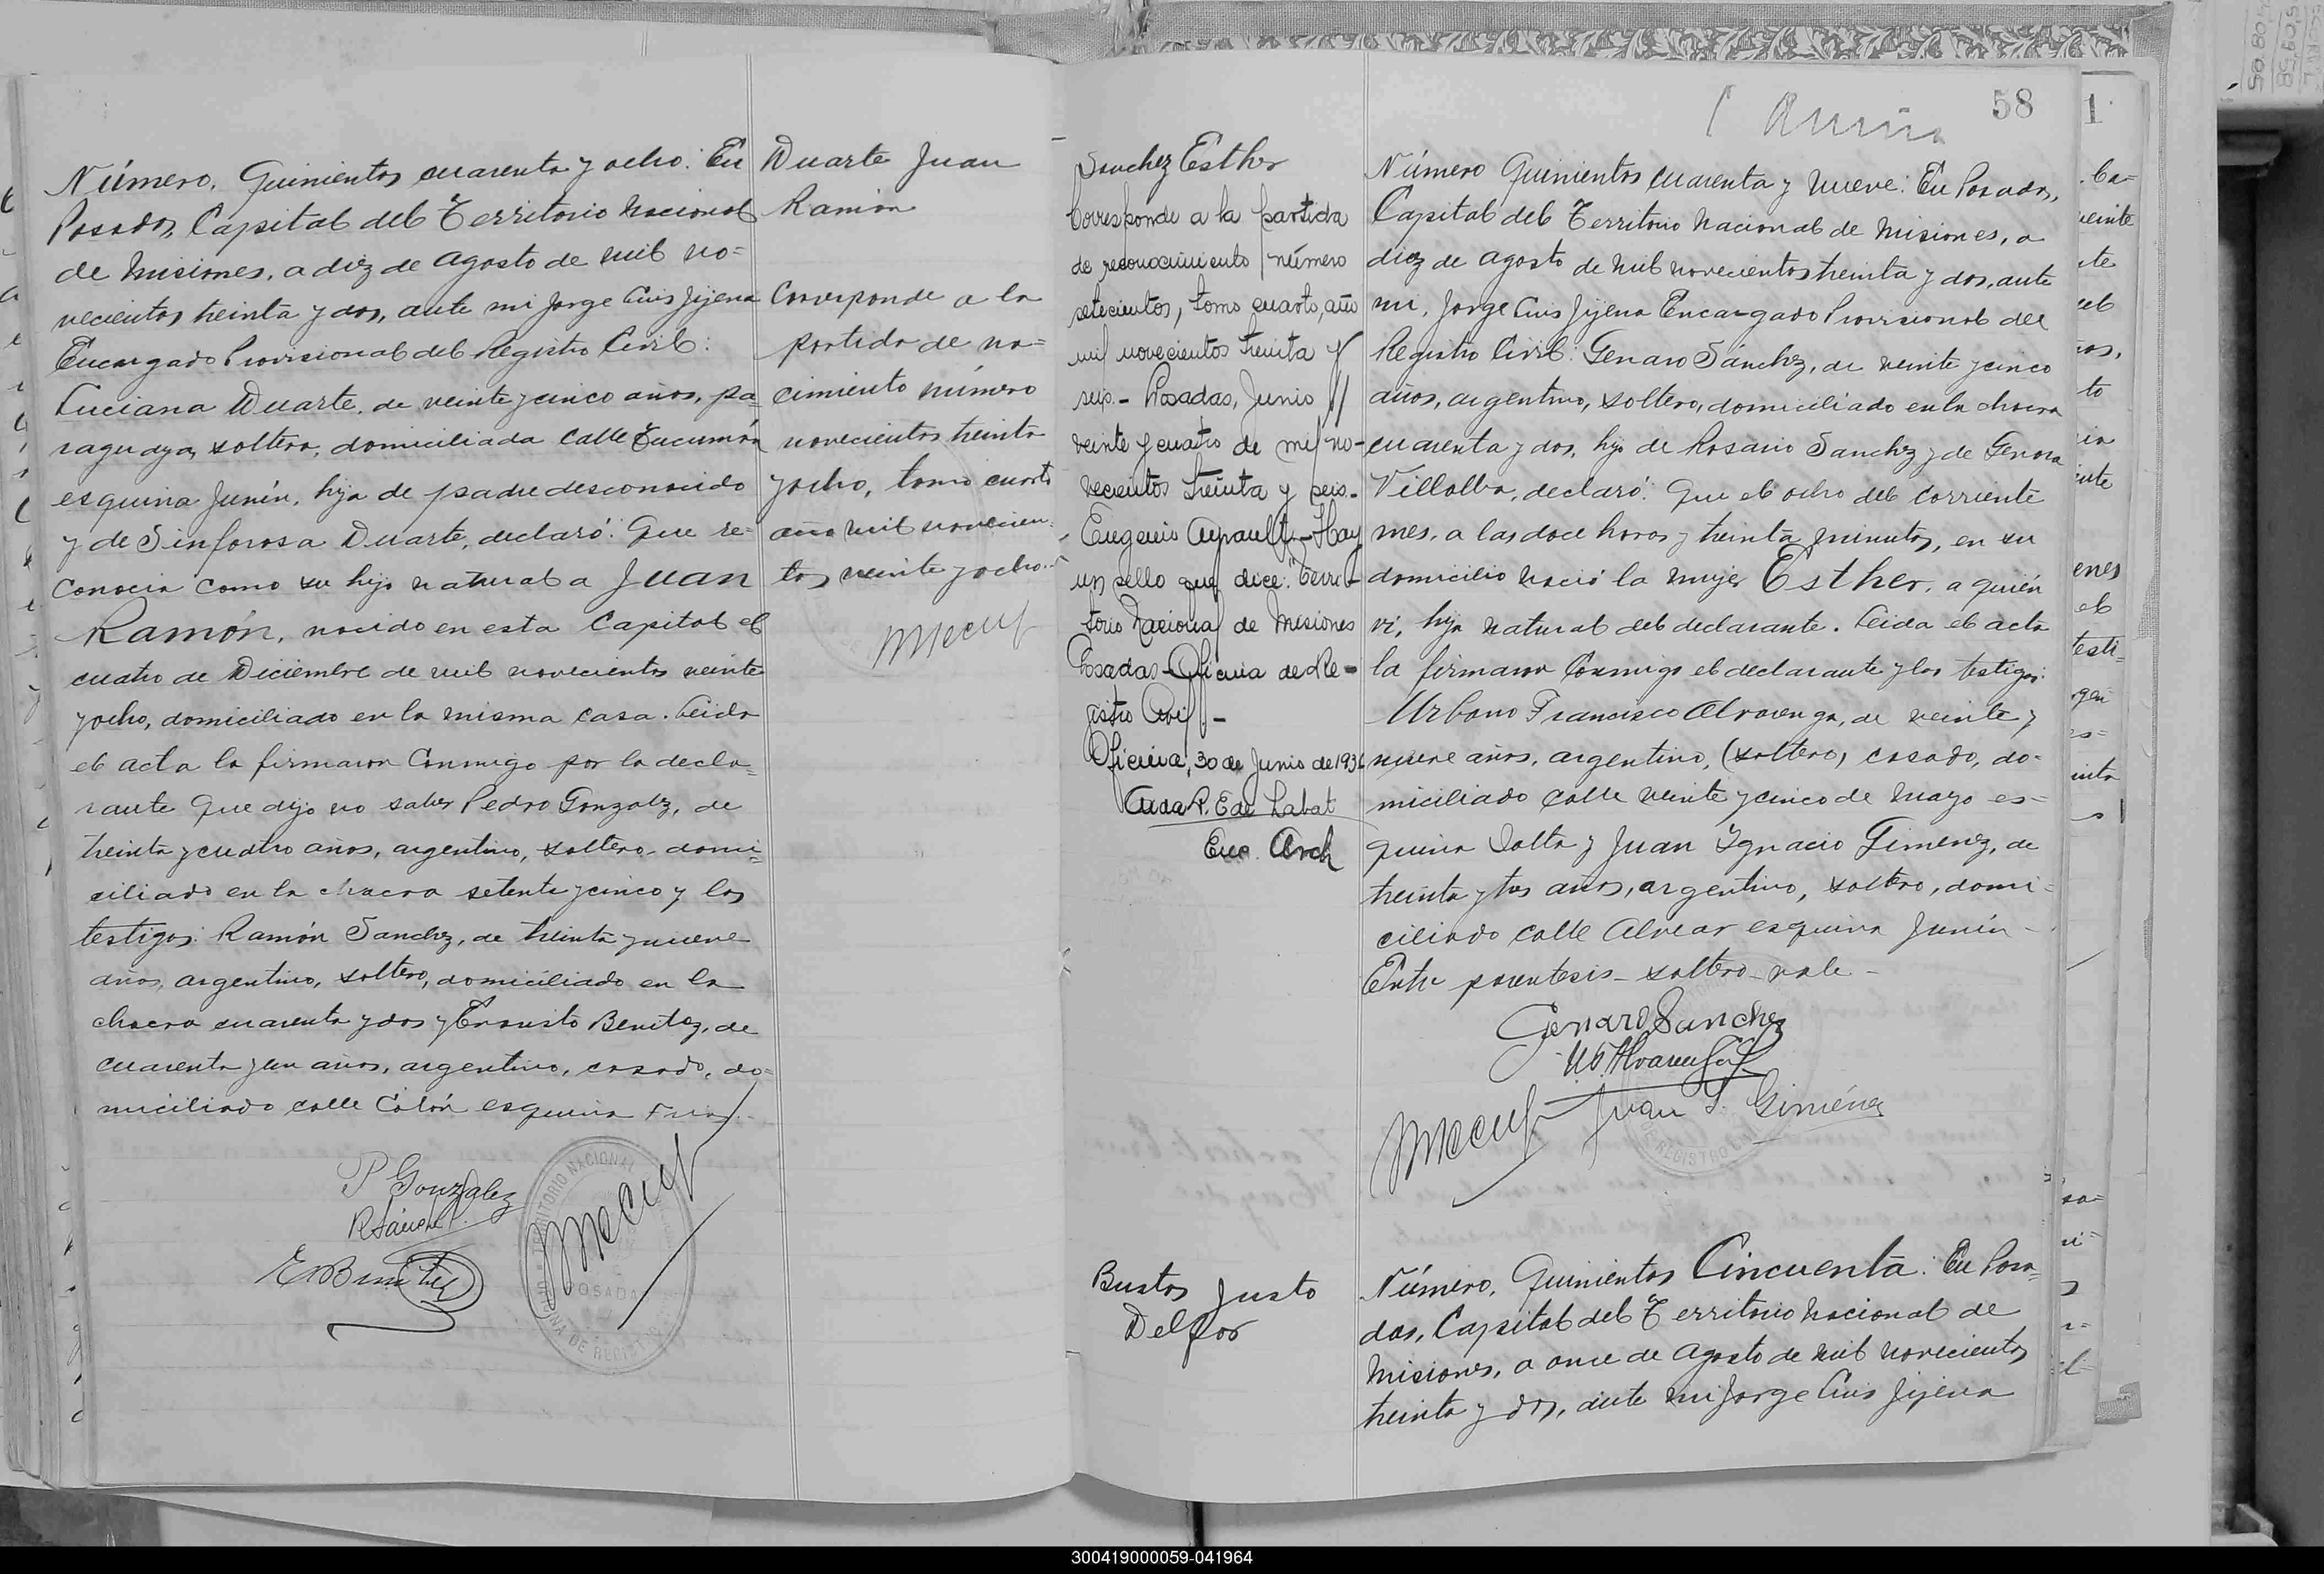 Número, Quinientos cuarenta y ocho: En
Posadas, Capital del Territorio Nacional
de Misiones, a diez de Agosto de mil no=
vecientos treinta y dos, ante mi Jorge Luis Jijena
Encargado Provisional del Registro Civil:
Luciana Duarte, de veinte y cinco años, pa=
raguaya, soltera, domiciliada calle Tucumán
esquina Junín, hija de padre desconocido
y de Sinforosa Duarte, declaró: Que re=
conocia como su hijo natural a Juan
Ramón, nacido en esta Capital el
cuatro de Diciembre de mil novecientos veinte
y ocho, domiciliado en la misma casa. Leida
el acta la firmaron Conmigo por la decla=
rante que dijo no saber Pedro Gonzalez, de
treinta y cuatro años, argentino, soltero, domi=
ciliado en la chacra setenta y cinco y los
testigos: Ramón Sanchez, de treinta y nueve
años, argentino, soltero, domiciliado en la
chacra cuarenta y dos y Ernesto Benitez, de
cuarenta y un años, argentino, casado, do=
miciliado calle Colón esquina
P Gonzalez
R Sánchez
E Benitez
TERRITORIO NACIONAL
POSADAS
OFICINA DE REGISTRO
Duarte Juan
Ramón
Corresponde a la
partida de na=
cimiento número
novecientos treinta
y ocho, tomo cuarto
año mil novecien=
tos veinte y ocho.
58
Sanchez Esther
Corresponde a la partida
de reconocimiento número
setecientos, tomo cuarto, año
mil novecientos treinta y
seis.- Posadas, Junio
veinte y cuatro de mil no-
vecientos treinta y seis.-
Eugenio - Hay
un sello que dice: "Terri-
torio Nacional de Misiones
Posadas - Oficina de Re-
gistro Civil".-
Oficina, 30 de Junio de 1936
R. E de Labat
Enc. Arch
Número Quinientos cuarenta y nueve: En Posadas,
Capital del Territorio Nacional de Misiones, a
diez de Agosto de mil novecientos treinta y dos, ante
mi, Jorge Luis Jijena Encargado Provisional del
Registro Civil: Genaro Sánchez, de veinte y cinco
años, argentino, soltero, domiciliado en la chacra
cuarenta y dos, hijo de Rosario Sanchez y de Genara
Villalba, declaró: Que el ocho del corriente
mes, a las doce horas y treinta minutos, en su
domicilio nació la mujer Esther, a quién
vi, hija natural del declarante. Leida el acta
la firmaron Conmigo el declarante y los testigos:
Urbano Francisco Alvarenga, de veinte y
nueve años, argentino, (soltero) casado, do-
miciliado calle veinte y cinco de Mayo es=
quina Salta y Juan Ygnacio Gimenez, de
treinta y tres años, argentino, soltero, domi=
ciliado calle Alvear esquina Junín -
Entre parentesis - soltero - vale -
Genaro Sanchez
U. F. Alvarenga
Juan I. Giménez
DE REGISTRO CIVIL
Bustos Justo
Delfor
Número, Quinientos Cincuenta: En Posa=
das, Capital del Territorio Nacional de
Misiones, a once de Agosto de mil novecientos
treinta y dos, ante mi Jorge Luis Jijena
300419000059-041964